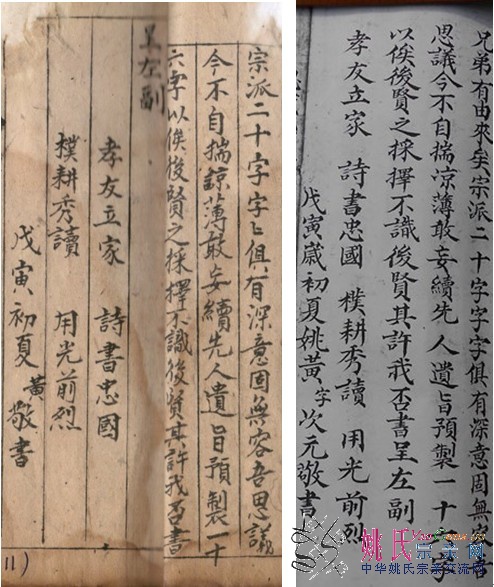 宗派二十字字〻俱有深意固無容吾思議
今不自揣諒薄敢妄續先人遺旨預製一十
六字以俟後賢之採擇不識後賢其許我否書
呈左副
孝友立家 詩書忠國
樸耕秀讀 用光前烈
戊寅初夏 黃敬書
11)
兄弟有由來矣宗派二十字字字俱有深意固無容吾
思議今不自揣凉薄敢妄續先人遺旨預製一十字
以俟後賢之採擇不識後賢其許我否書呈左副
孝友立家 詩書忠國 樸耕秀讀 用光前烈
戊寅歲初夏姚黃字次元敬書
姚氏宗亲网
中华姚氏宗亲交流网